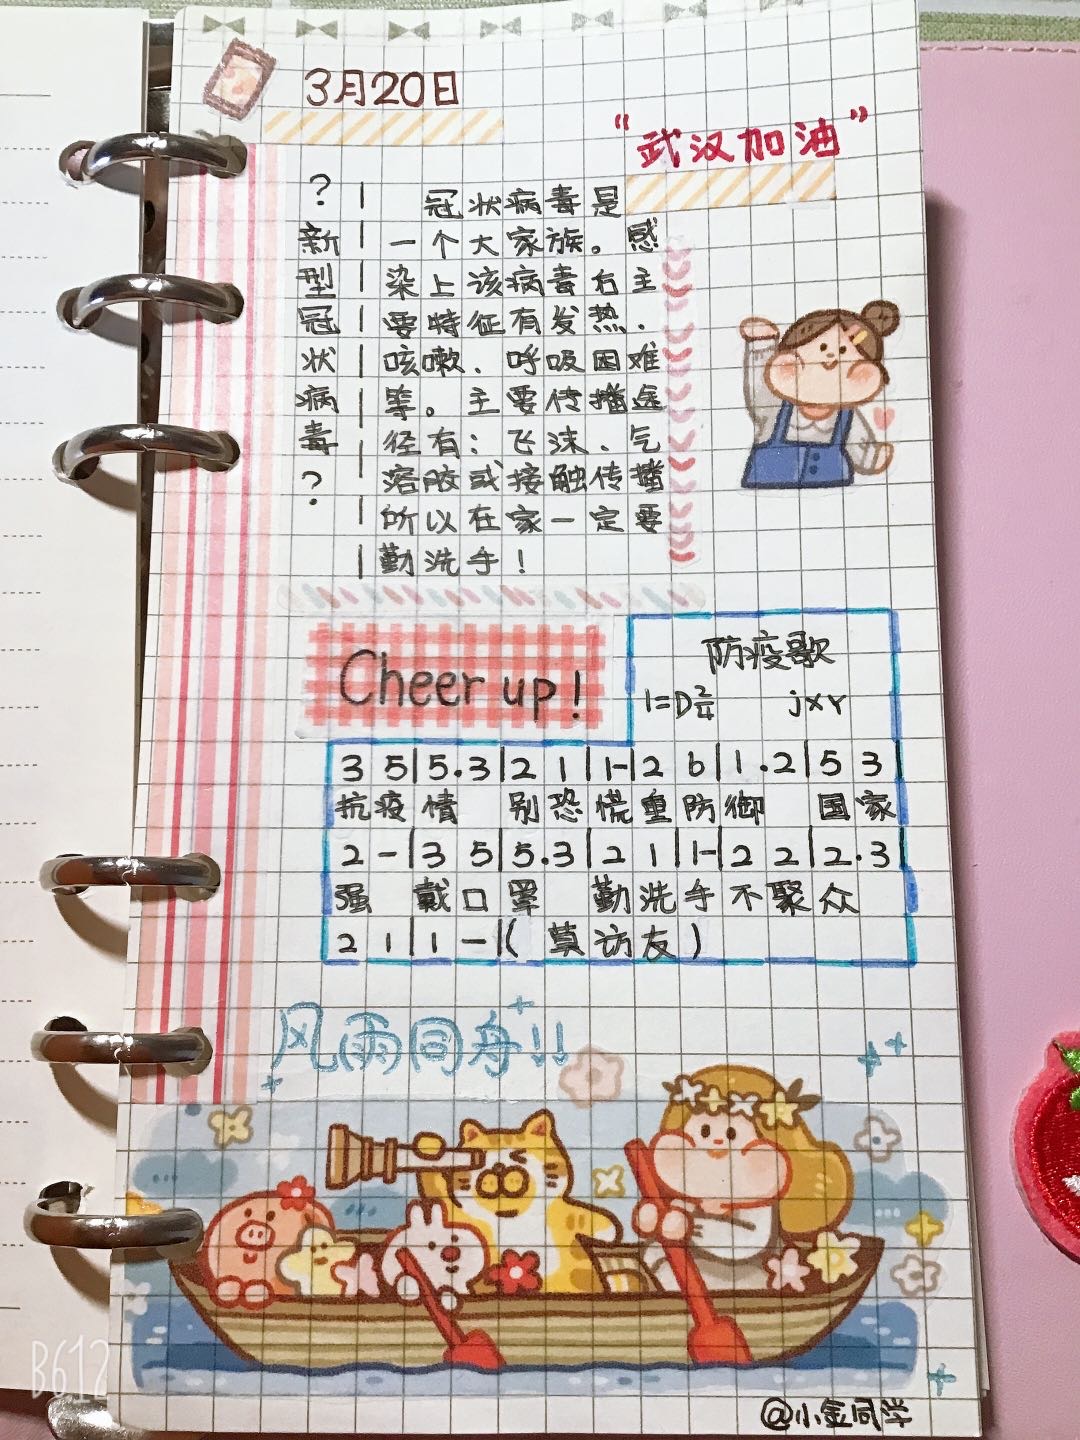 3月20日
"武汉加油"
?新型冠状病毒?
冠状病毒是
一个大家族。感
染上该病毒右主
要特征有发热、
咳嗽、呼吸困难
等。主要传播途
径有：飞沫、气
溶胶或接触传播
所以在家一定要
勤洗手！
Cheer up!
防疫歌
1=D 2/4 jxy
3 5|5.3|2 1|1-|2 6|1.2|5 3
抗疫情 别恐慌重防御 国家
2-|3 5|5.3|2 1|1-|2 2|2.3
强 戴口罩 勤洗手不聚众
2 1|1-|(莫访友)
风雨同舟!!
B612
@小金同学